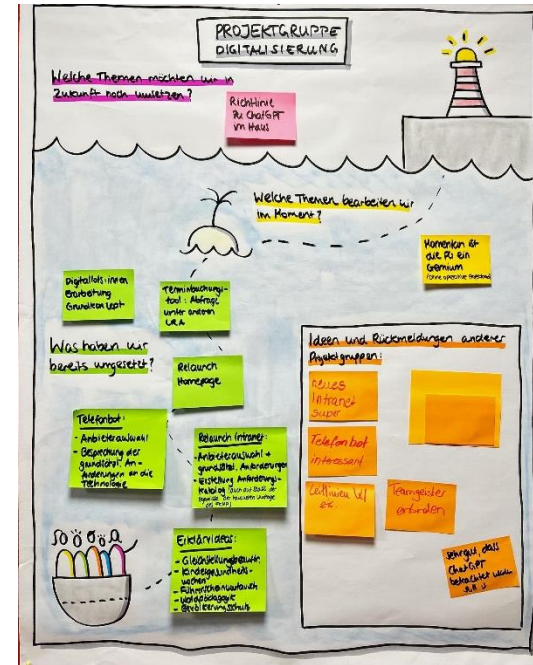 PROJEKTGRUPPE
DIGITALISIERUNG
Welche Themen möchten wir in
Zukunft noch umsetzen?
Richtlinie
zu ChatGPT
im Haus
Welche Themen bearbeiten wir
im Moment?
Momentan ist
die PG ein
Gremium
Digitallots:innen
Erarbeitung
Grundkonzept
Terminbuchungs-
tool: Abfrage
unter anderen
LRA
Was haben wir
bereits umgesetzt?
Relaunch
Homepage
Telefonbot:
- Anbieterauswahl
- Besprechung der
grundsätzl. An-
forderungen an die
Technologie
Relaunch Intranet:
- Anbieterauswahl +
grundsätzl. Anforderungen
- Erstellung Anforderungs-
katalog
Erklärvideos:
- Gleichstellungsbeauftr.
- Kindergesundheits-
wochen
- Führerscheinumtausch
- Waldpädagogik
- Bevölkerungsschutz
Ideen und Rückmeldungen anderer
Projektgruppen:
neues
Intranet
super
Telefonbot
interessant
Leitlinien
Teamgeister
erfinden
sehr gut, dass
ChatGPT
betrachtet